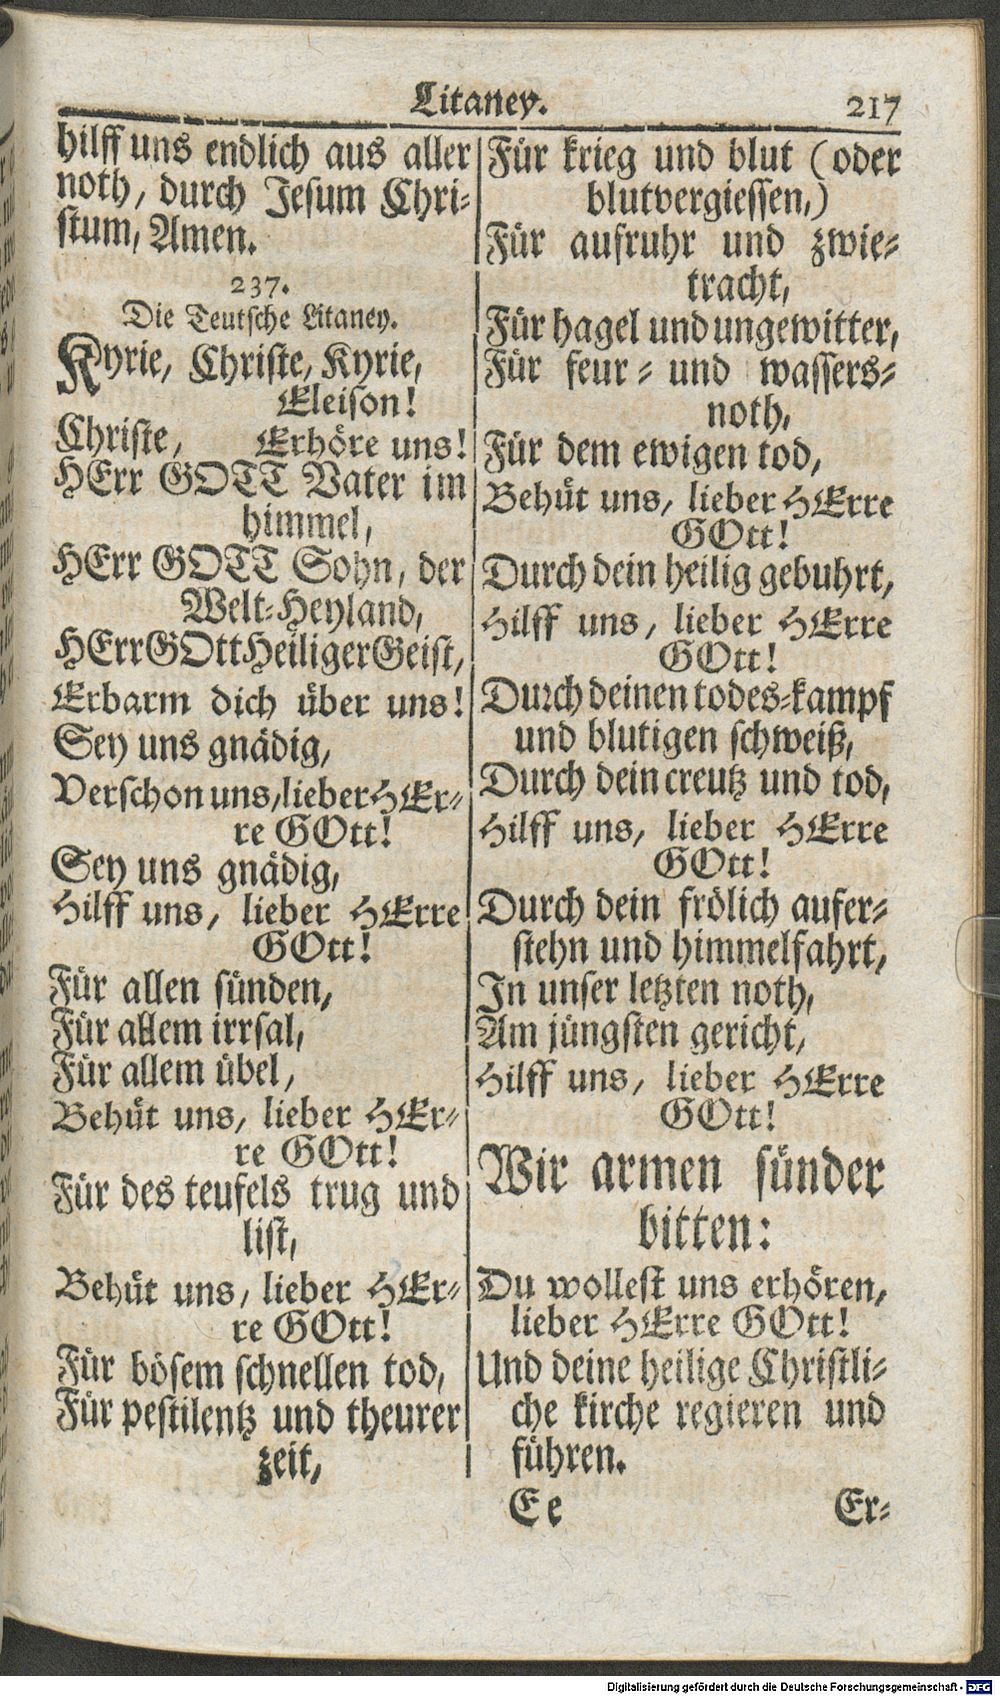 Litaney. 217
hilff uns endlich aus aller
noth, durch Jesum Chri-
stum, Amen.
237.
Die Teutsche Litaney.
Kyrie, Christe, Kyrie,
Eleison!
Christe, Erhöre uns!
HErr GOTT Vater im
himmel,
HErr GOTT Sohn, der
Welt-Heyland,
HErr GOtt Heiliger Geist,
Erbarm dich über uns!
Sey uns gnädig,
Verschon uns, lieber HEr-
re GOtt!
Sey uns gnädig,
Hilff uns, lieber HErre
GOtt!
Für allen sünden,
Für allem irrsal,
Für allem übel,
Behüt uns, lieber HEr-
re GOtt!
Für des teufels trug und
list,
Behüt uns, lieber HEr-
re GOtt!
Für bösem schnellen tod,
Für pestilentz und theurer
zeit,
Für krieg und blut (oder
blutvergiessen,)
Für aufruhr und zwie-
tracht,
Für hagel und ungewitter,
Für feur- und wassers-
noth,
Für dem ewigen tod,
Behüt uns, lieber HErre
GOtt!
Durch dein heilig gebuhrt,
Hilff uns, lieber HErre
GOtt!
Durch deinen todes-kampf
und blutigen schweiß,
Durch dein creutz und tod,
Hilff uns, lieber HErre
GOtt!
Durch dein frölich aufer-
stehn und himmelfahrt,
In unser letzten noth,
Am jüngsten gericht,
Hilff uns, lieber HErre
GOtt!
Wir armen sünder
bitten:
Du wollest uns erhören,
lieber HErre GOtt!
Und deine heilige Christli-
che kirche regieren und
führen.
Ee Er-
Digitalisierung gefördert durch die Deutsche Forschungsgemeinschaft - DFG